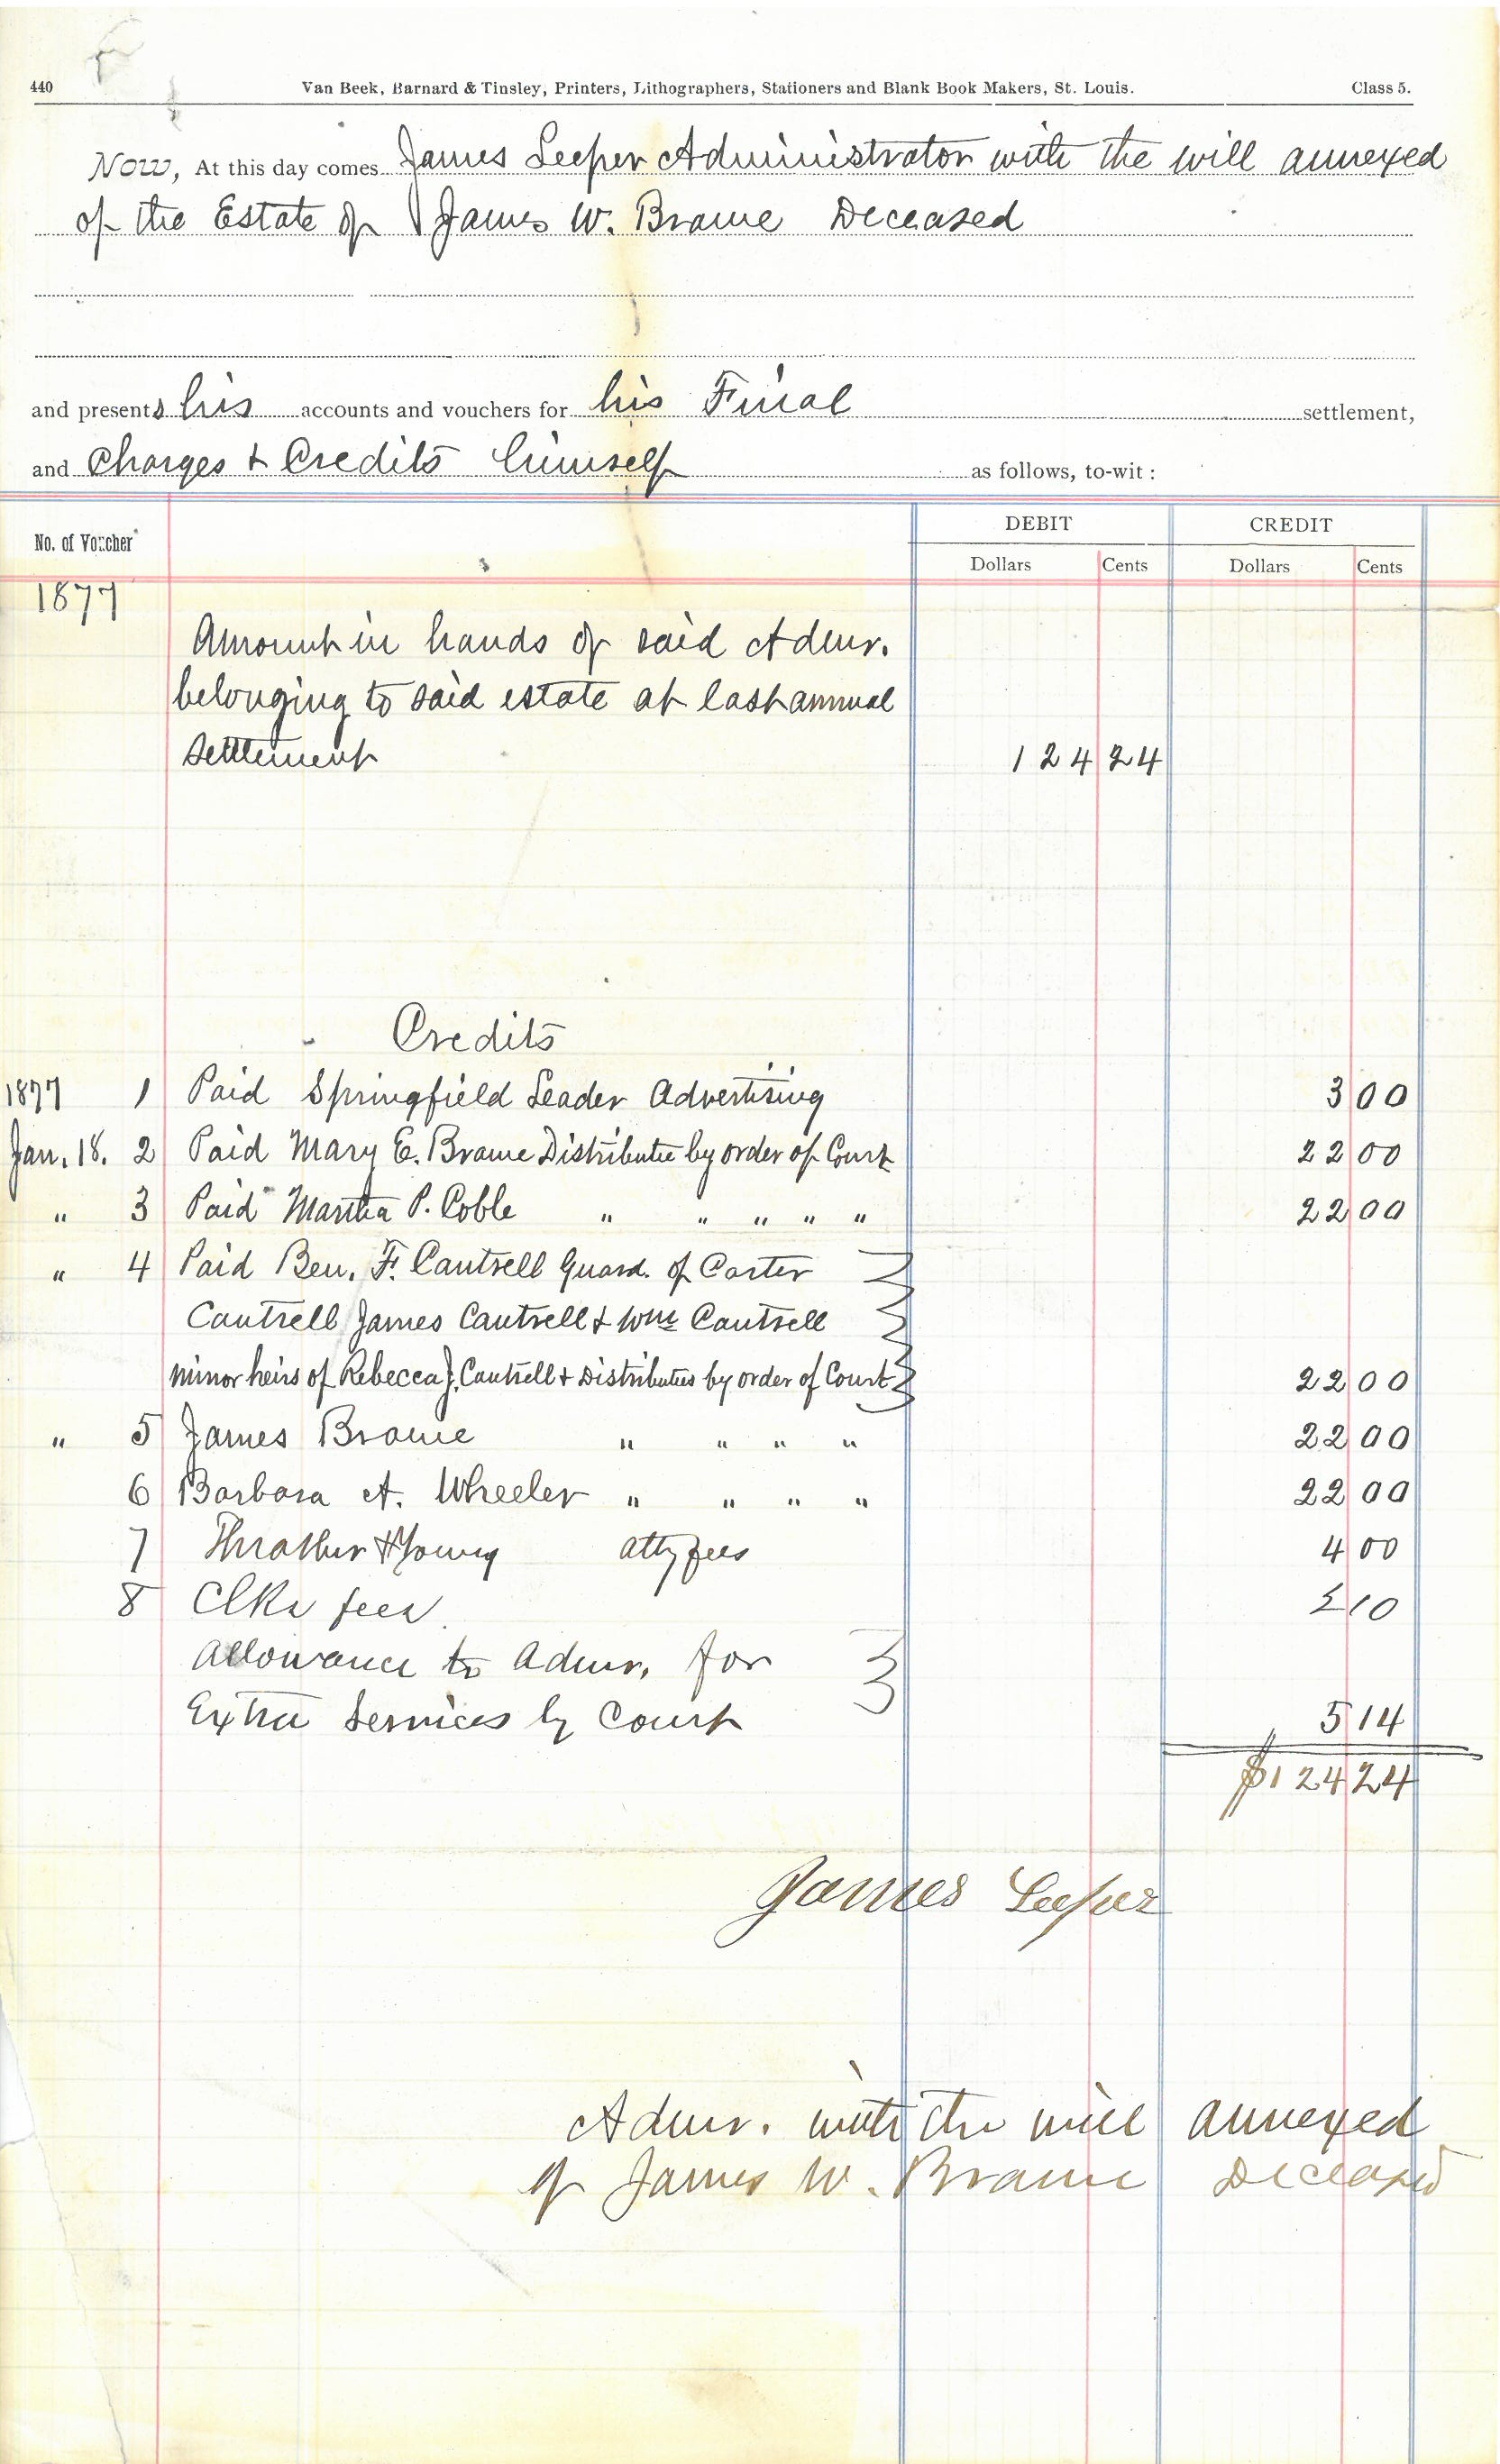 440 Van Beek, Barnard & Tinsley, Printers, Lithographers, Stationers and Blank Book Makers, St. Louis. Class 5.
NOW, At this day comes James Leeper Administrator with the will annexed
of the Estate of James W. Brame Deceased
and presents his accounts and vouchers for his Final settlement,
and Charges & Credits himself as follows, to-wit:
No. of Voucher DEBIT CREDIT
Dollars Cents Dollars Cents
1877
Amount in hands of said Admr.
belonging to said estate at last annual
settlement 124 24
Credits
1877 1 Paid Springfield Leader Advertising 3 00
Jan. 18. 2 Paid Mary E. Brame Distributee by order of Court 22 00
" 3 Paid Martha P. Coble " " " " " 22 00
" 4 Paid Ben. F. Cantrell Guard. of Carter
Cantrell James Cantrell & Wm Cantrell
minor heirs of Rebecca J. Cantrell & Distributees by order of Court 22 00
" 5 James Brame " " " " 22 00
6 Barbara A. Wheeler " " " " 22 00
7 Thrasher & Young atty fees 4 00
8 Clks fees 2 10
Allowance to Admr. for
Extra Services by Court 5 14
$124 24
James Leeper
Admr. with the will annexed
of James W. Brame Deceased